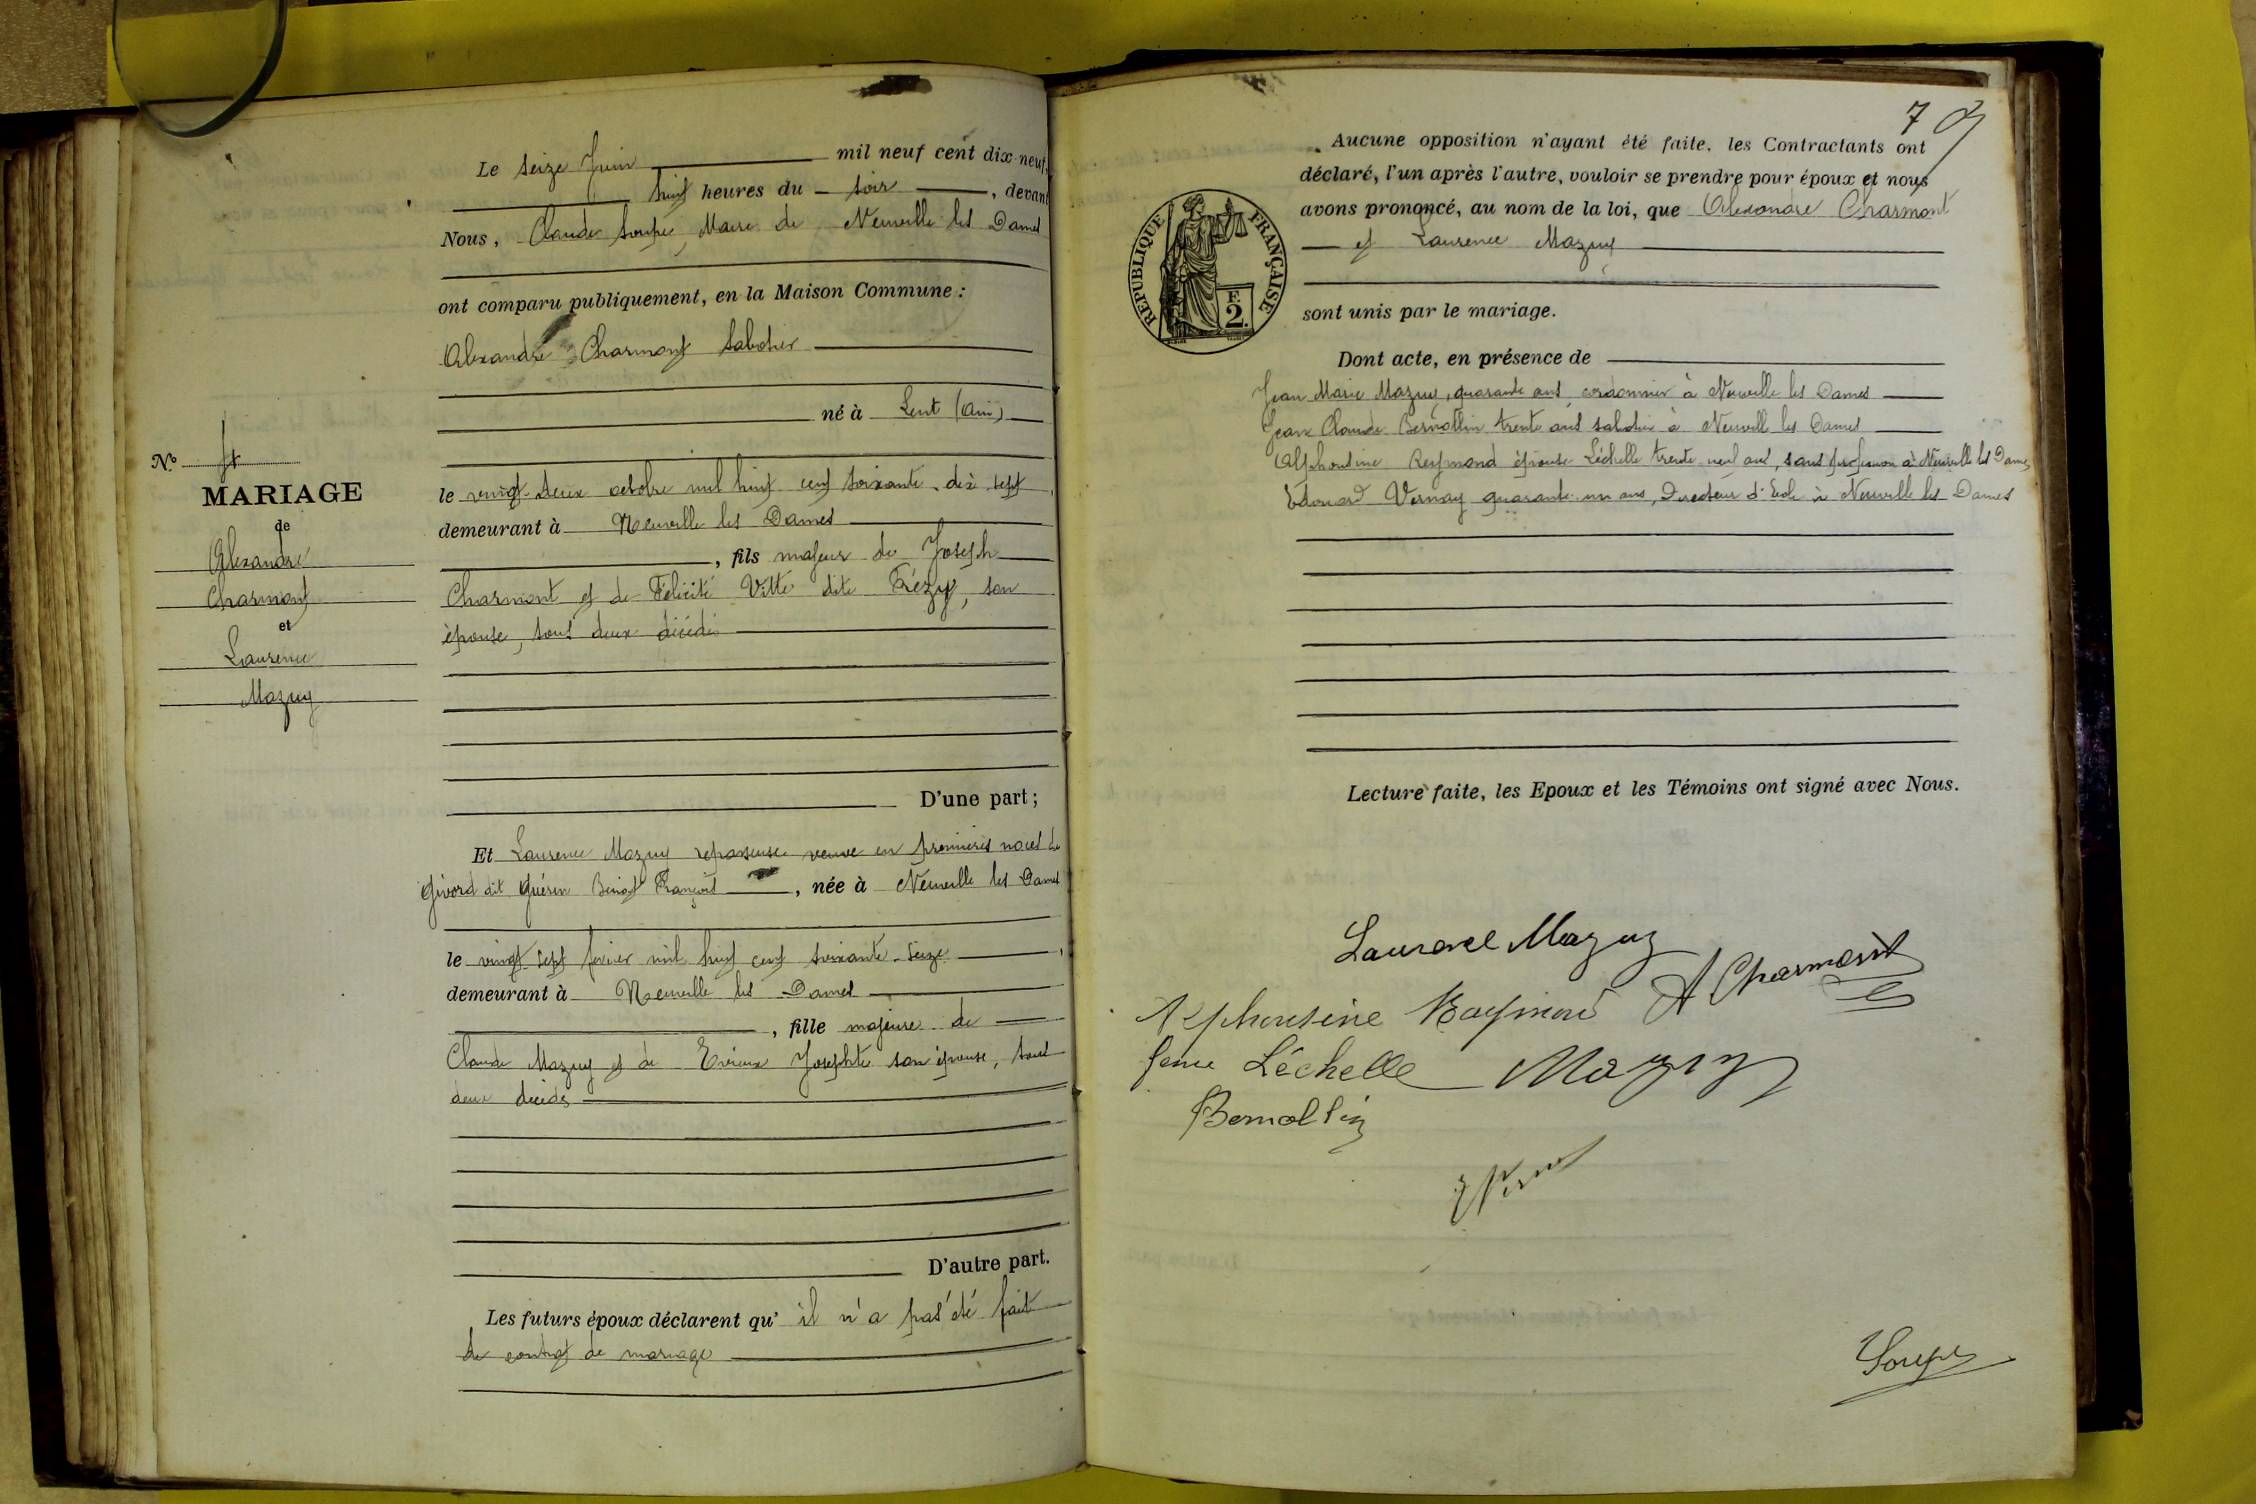 Le seize Juin mil neuf cent dix-neuf,
huit heures du soir, devant
Nous, Claude Soupe, Maire de Neuville les Dames
ont comparu publiquement, en la Maison Commune :
Alexandre Charmont Sabotier
né à Lent (Ain)
N.º
MARIAGE
de
Alexandre
Charmont
et
Laurence
Mazuy
le vingt-deux octobre mil huit cent soixante-dix-sept,
demeurant à Neuville les Dames
, fils majeur de Joseph
Charmont et de Félicité Vitte dite Frézy, son
épouse, tous deux décédés
D'une part ;
Et Laurence Mazuy repasseuse veuve en premières noces de
Givord dit Guérin Benoit François, née à Neuville les Dames
le vingt-sept février mil huit cent soixante-seize,
demeurant à Neuville les Dames
, fille majeure de
Claude Mazuy et de Evieux Josephte son épouse, tous
deux décédés
D'autre part.
Les futurs époux déclarent qu' il n'a pas été fait
de contrat de mariage
7
Aucune opposition n'ayant été faite, les Contractants ont
déclaré, l'un après l'autre, vouloir se prendre pour époux et nous
avons prononcé, au nom de la loi, que Alexandre Charmont
et Laurence Mazuy
RÉPUBLIQUE FRANÇAISE
F.
2.
sont unis par le mariage.
Dont acte, en présence de
Jean Marie Mazuy, quarante ans, cordonnier à Neuville les Dames
Jean Claude Bernollin trente ans sabotier à Neuville les Dames
Alphonsine Reymond épouse Léchelle trente-neuf ans, sans profession à Neuville les Dames
Edouard Vernay quarante-un ans, Directeur d'Ecole à Neuville les Dames
Lecture faite, les Epoux et les Témoins ont signé avec Nous.
Laurence Mazuy
A Charmont
Alphonsine Raymond
feme Léchelle
Mazuy
Bernollin
Soupe